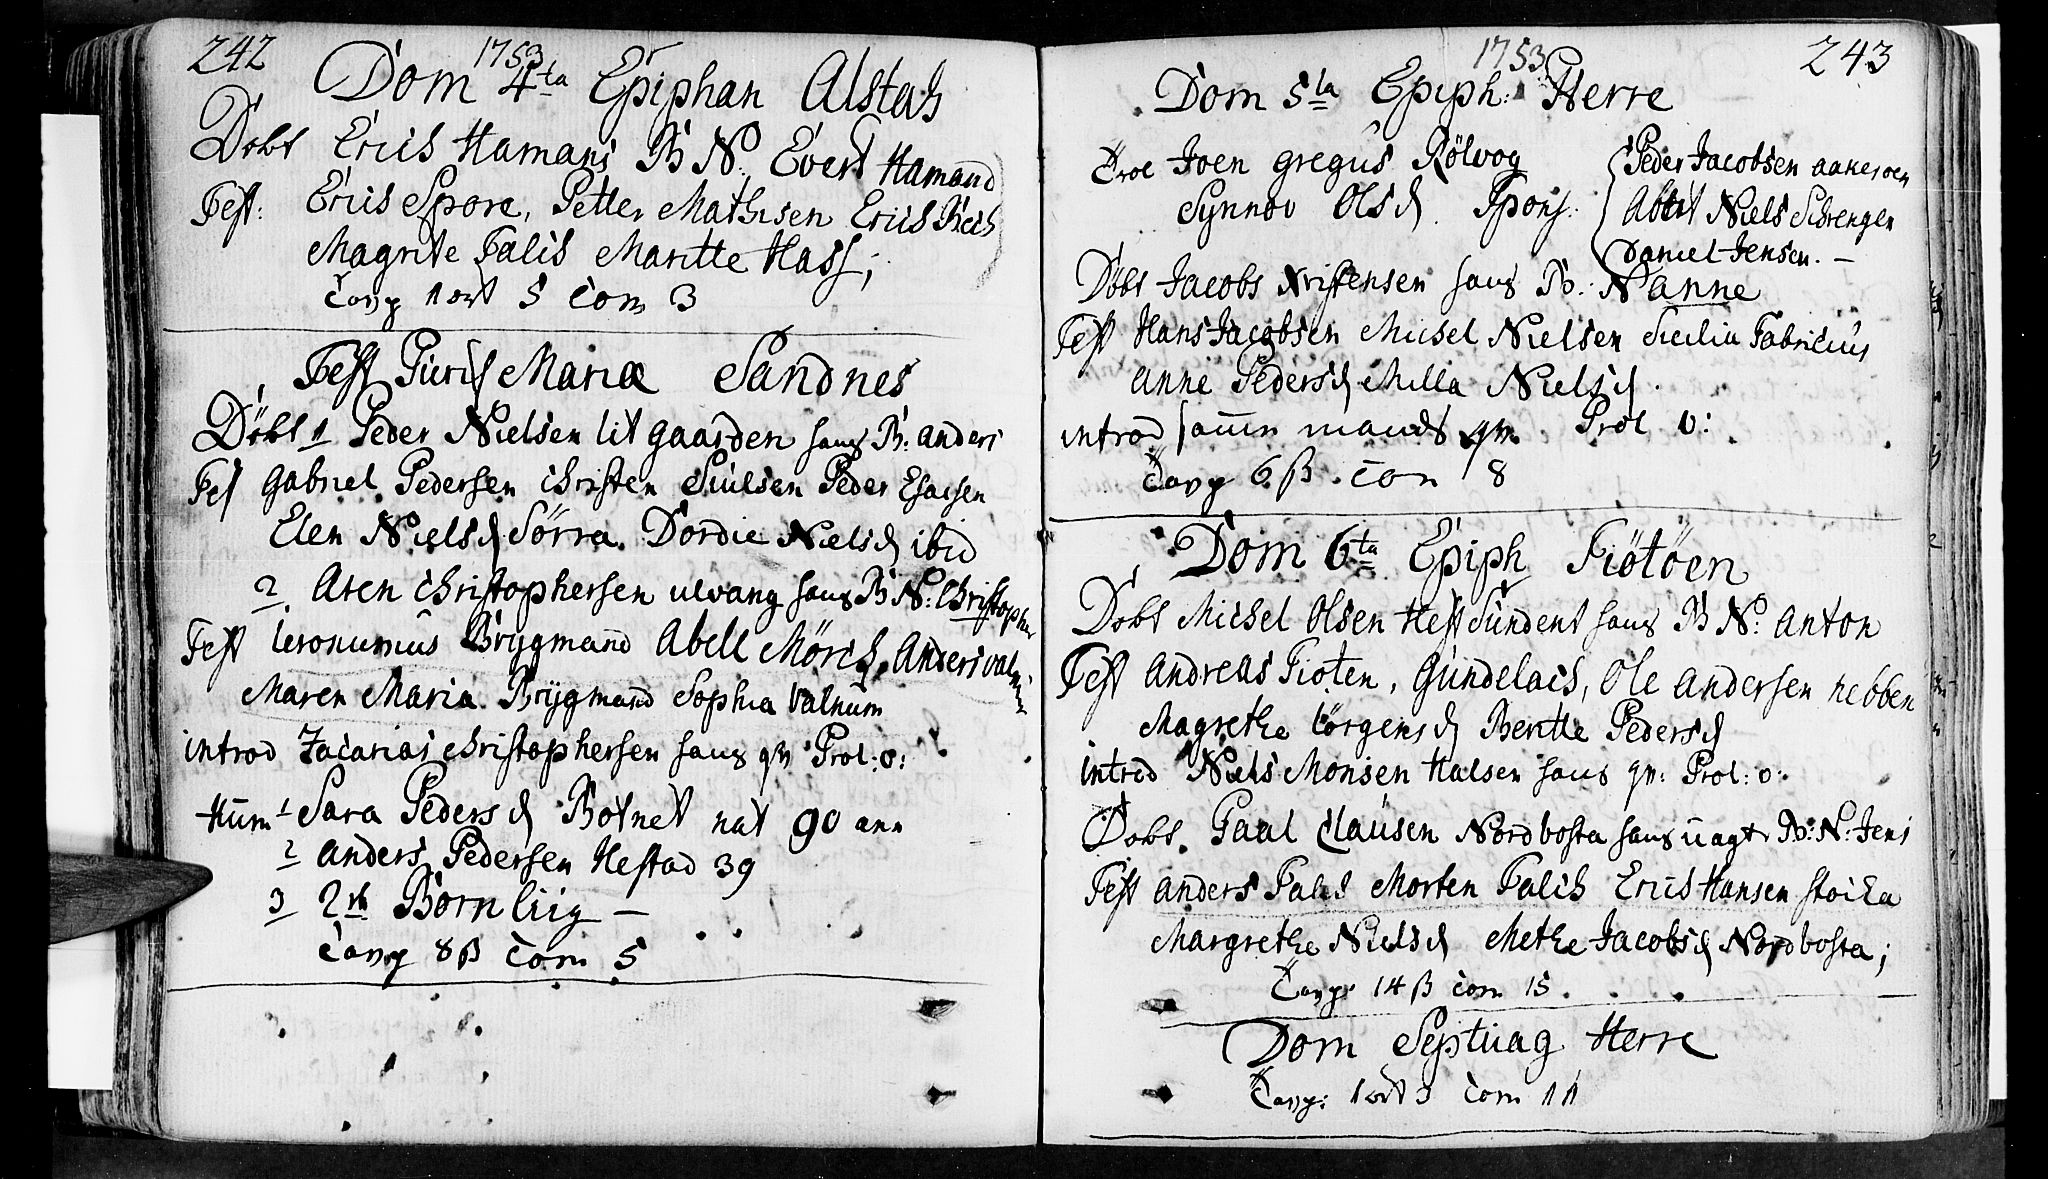 242
1753
Dom 4ta Epiphan Alstah
Döbt Erich Hamans B N. Evert Hamand
Test: Erich Spore, Petter Mathisen Erich
Magrite Falch Maritte Hass;
Tavg 1 ort 5 Com 3
Fest Purif Mariæ Sandnes
Döbt 1 Peder Nielsen litgaarden hans B: anders
Test Gabriel Pedersen Christen Siulsen Peder Esaisen
Elen Nielsd Sörra Dordie Nielsd ibid
2 Aren Christophersen ulvang hans B N: Christopher
Test Ieronumus Brygmand Abell Mörch, Anders valnum
Maren Maria Brygmand Sophia Valnum
introd Zacarias Christophersen hans qv Prol: 0:
Hum 1 Sara Pedersd Botnet nat 90 ann
2 anders Pedersen Hestad 39
3 2de Börn liig —
Tavg 8 β Com 5
1753
243
Dom 5ta Epiph: Herre
Trol Joen gregus Rölvog
Synnov Olsd. Spons:
Peder Jacobsen aakeroen
Abbit Niels
Daniel Jensen. —
Döbt Jacobs Kristensen hans B: N anne
Test Hans Jacobsen Michel Nielsen Sicilia Fabricius
Anne Pedersd Milla Nielsd.
introd samm mands qv. Prol 0:
Tavg 6 β. Com 8
Dom 6ta Epiph Tiötöen
Döbt Michel Olsen Hestsundent hans B N: Anton
Test Andreas Tioten, Gundelach, Ole Andersen nebben
Magrethe Iörgensd Beritte Pedersd
introd Niels Monsen Halsen hans qv: Prol: 0:
Döbt. Paal Clausen Nordbosta hans uagt B: N: Jens
Test anders Falch Morten Falch Erich Hansen stocka
Margrethe Nielsd Methe Jacobsd Nordbosta;
Tavg. 14 β Com 15.
Dom Septuag Herre
Tavg: 1 ort 3 Com 11